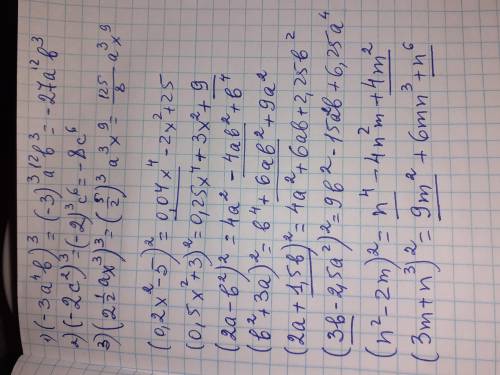 1) (-3a⁴b)³ = (-3)³a¹²b³ = -27a¹²b³
2) (-2c²)³ = (-2)³c⁶ = -8c⁶
3) (2½ax³)³ = (5/2)³a³x⁹ = 125/8 a³x⁹
(0,2x²-5)² = 0,04x⁴-2x²+25
(0,5x²+3)² = 0,25x⁴+3x²+9
(2a-b²)² = 4a²-4ab²+b⁴
(b²+3a)² = b⁴+6ab²+9a²
(2a+1,5b)² = 4a²+6ab+2,25b²
(3b-2,5a²)² = 9b²-15a²b+6,25a⁴
(n²-2m)² = n⁴-4n²m+4m²
(3m+n³)² = 9m²+6mn³+n⁶